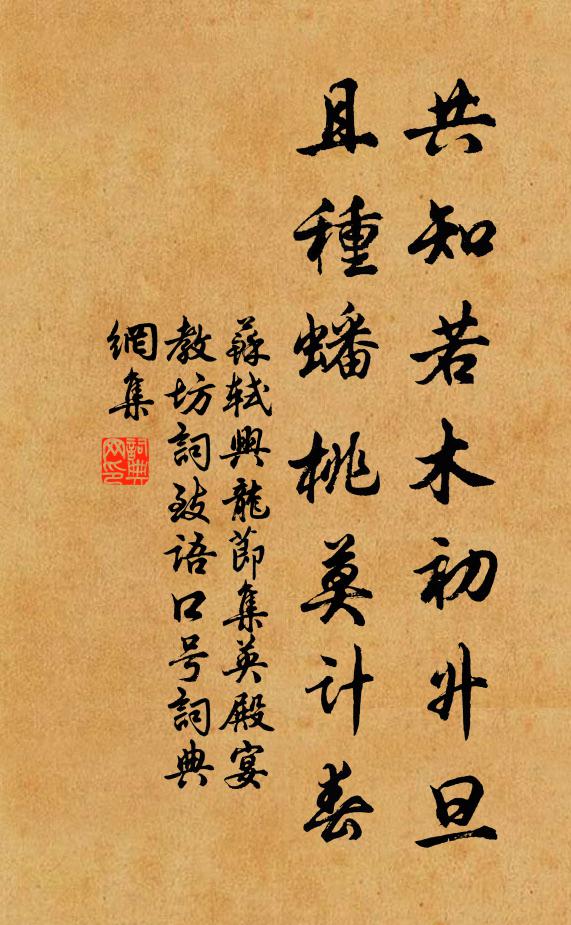 共知若木初升旦
且種蟠桃莫計春
蘇軾興龍節集英殿宴
教坊詞致語口号詞典
網集
詞典網印